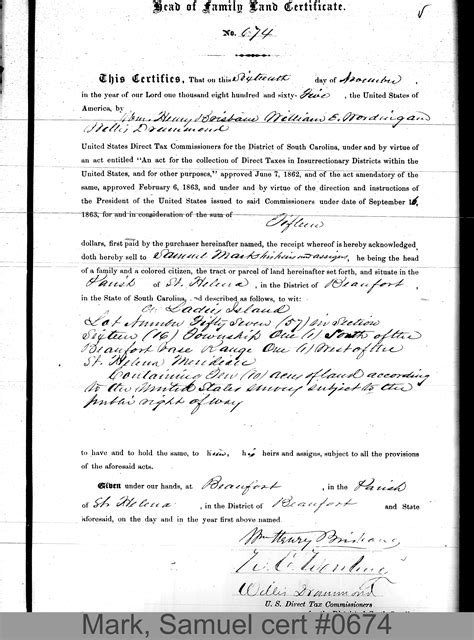 Head of Family Land Certificate.
No. 674
This Certifies, That on this Sixteenth day of November,
in the year of our Lord one thousand eight hundred and sixty-Five, the United States of
America, by Wm. Henry Brisbane William E. Wording and
Willis Drummond
United States Direct Tax Commissioners for the District of South Carolina, under and by virtue of
an act entitled "An act for the collection of Direct Taxes in Insurrectionary Districts within the
United States, and for other purposes," approved June 7, 1862, and of the act amendatory of the
same, approved February 6, 1863, and under and by virtue of the direction and instructions of
the President of the United States issued to said Commissioners under date of September 16,
1863, for and in consideration of the sum of
Fifteen
dollars, first paid by the purchaser hereinafter named, the receipt whereof is hereby acknowledged
doth hereby sell to Samuel Mark his heirs and assigns, he being the head
of a family and a colored citizen, the tract or parcel of land hereinafter set forth, and situate in the
Parish of St. Helena, in the District of Beaufort,
in the State of South Carolina, and described as follows, to wit:
on Ladies Island
Lot Number Fifty Seven (57) in Section
Sixteen (16) Township One (1) South of the
Beaufort base Range One (1) West of the
St. Helena Meridian
Containing Ten (10) acres of land according
to the United States survey subject to the
public right of way
to have and to hold the same, to him, his heirs and assigns, subject to all the provisions
of the aforesaid acts.
Given under our hands, at Beaufort, in the Parish
of St. Helena, in the District of Beaufort and State
aforesaid, on the day and in the year first above named.
Wm Henry Brisbane
W. E. Wording
Willis Drummond
U. S. Direct Tax Commissioners
Mark, Samuel cert #0674